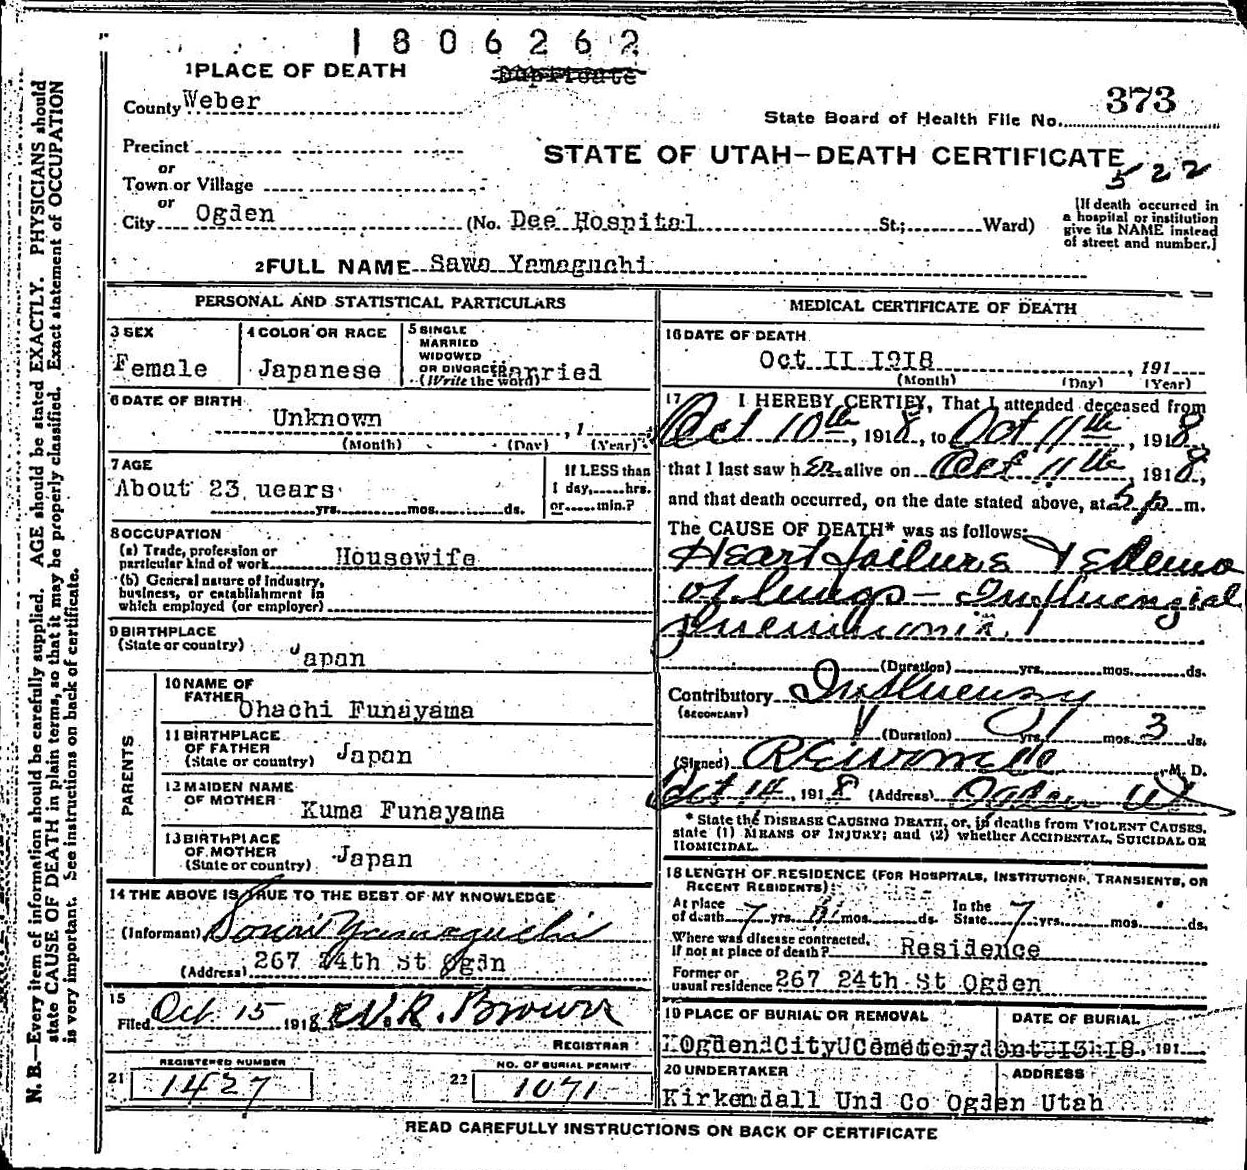 1806262
Duplicate
1 PLACE OF DEATH
County Weber
373
State Board of Health File No.
Precinct
STATE OF UTAH—DEATH CERTIFICATE
522
or
Town or Village
or
City Ogden (No. Dee Hospital St.; Ward)
[If death occurred in
a hospital or institution
give its NAME instead
of street and number.]
2 FULL NAME Sawa Yamaguchi
PERSONAL AND STATISTICAL PARTICULARS
3 SEX
Female
4 COLOR OR RACE
Japanese
5 SINGLE
MARRIED
WIDOWED
OR DIVORCED
(Write the word)
Married
6 DATE OF BIRTH
Unknown , 1
(Month) (Day) (Year)
7 AGE
About 23 uears
yrs. mos. ds.
If LESS than
1 day, hrs.
or min.?
8 OCCUPATION
(a) Trade, profession or
particular kind of work Housewife
(b) General nature of Industry,
business, or establishment in
which employed (or employer)
9 BIRTHPLACE
(State or country) Japan
PARENTS
10 NAME OF
FATHER Ohachi Funayama
11 BIRTHPLACE
OF FATHER
(State or country) Japan
12 MAIDEN NAME
OF MOTHER Kuma Funayama
13 BIRTHPLACE
OF MOTHER
(State or country) Japan
14 THE ABOVE IS TRUE TO THE BEST OF MY KNOWLEDGE
(Informant) Yamaguchi
(Address) 267 24th St Ogdn
15
Filed Oct 15 1918 W.R. Brown
REGISTRAR
21 REGISTERED NUMBER
1427
22 NO. OF BURIAL PERMIT
1071
MEDICAL CERTIFICATE OF DEATH
16 DATE OF DEATH
Oct II 1918 , 191
(Month) (Day) (Year)
17 I HEREBY CERTIFY, That I attended deceased from
Oct 10th, 1918, to Oct 11th, 1918,
that I last saw her alive on Oct 11th, 1918,
and that death occurred, on the date stated above, at 5 p m.
The CAUSE OF DEATH* was as follows:
Heart failure & Edema
of lungs — Influenzial
pneumonia.
(Duration) yrs. mos. ds.
Contributory Influenza
(SECONDARY)
(Duration) yrs. mos. 3 ds.
(Signed) M. D.
Oct 14, 1918 (Address) Ogden Ut
* State the DISEASE CAUSING DEATH, or, in deaths from VIOLENT CAUSES,
state (1) MEANS OF INJURY; and (2) whether ACCIDENTAL, SUICIDAL OR
HOMICIDAL.
18 LENGTH OF RESIDENCE (FOR HOSPITALS, INSTITUTIONS, TRANSIENTS, OR
RECENT RESIDENTS):
At place
of death 7 yrs. mos. ds. In the
State 7 yrs. mos. ds.
Where was disease contracted,
If not at place of death? Residence
Former or
usual residence 267 24th St Ogden
19 PLACE OF BURIAL OR REMOVAL
Ogden City Cemetery
DATE OF BURIAL
191
20 UNDERTAKER
ADDRESS
Kirkendall Und Co Ogden Utah
READ CAREFULLY INSTRUCTIONS ON BACK OF CERTIFICATE
N. B.—Every item of information should be carefully supplied. AGE should be stated EXACTLY. PHYSICIANS should
state CAUSE OF DEATH in plain terms, so that it may be properly classified. Exact statement of OCCUPATION
is very important. See instructions on back of certificate.